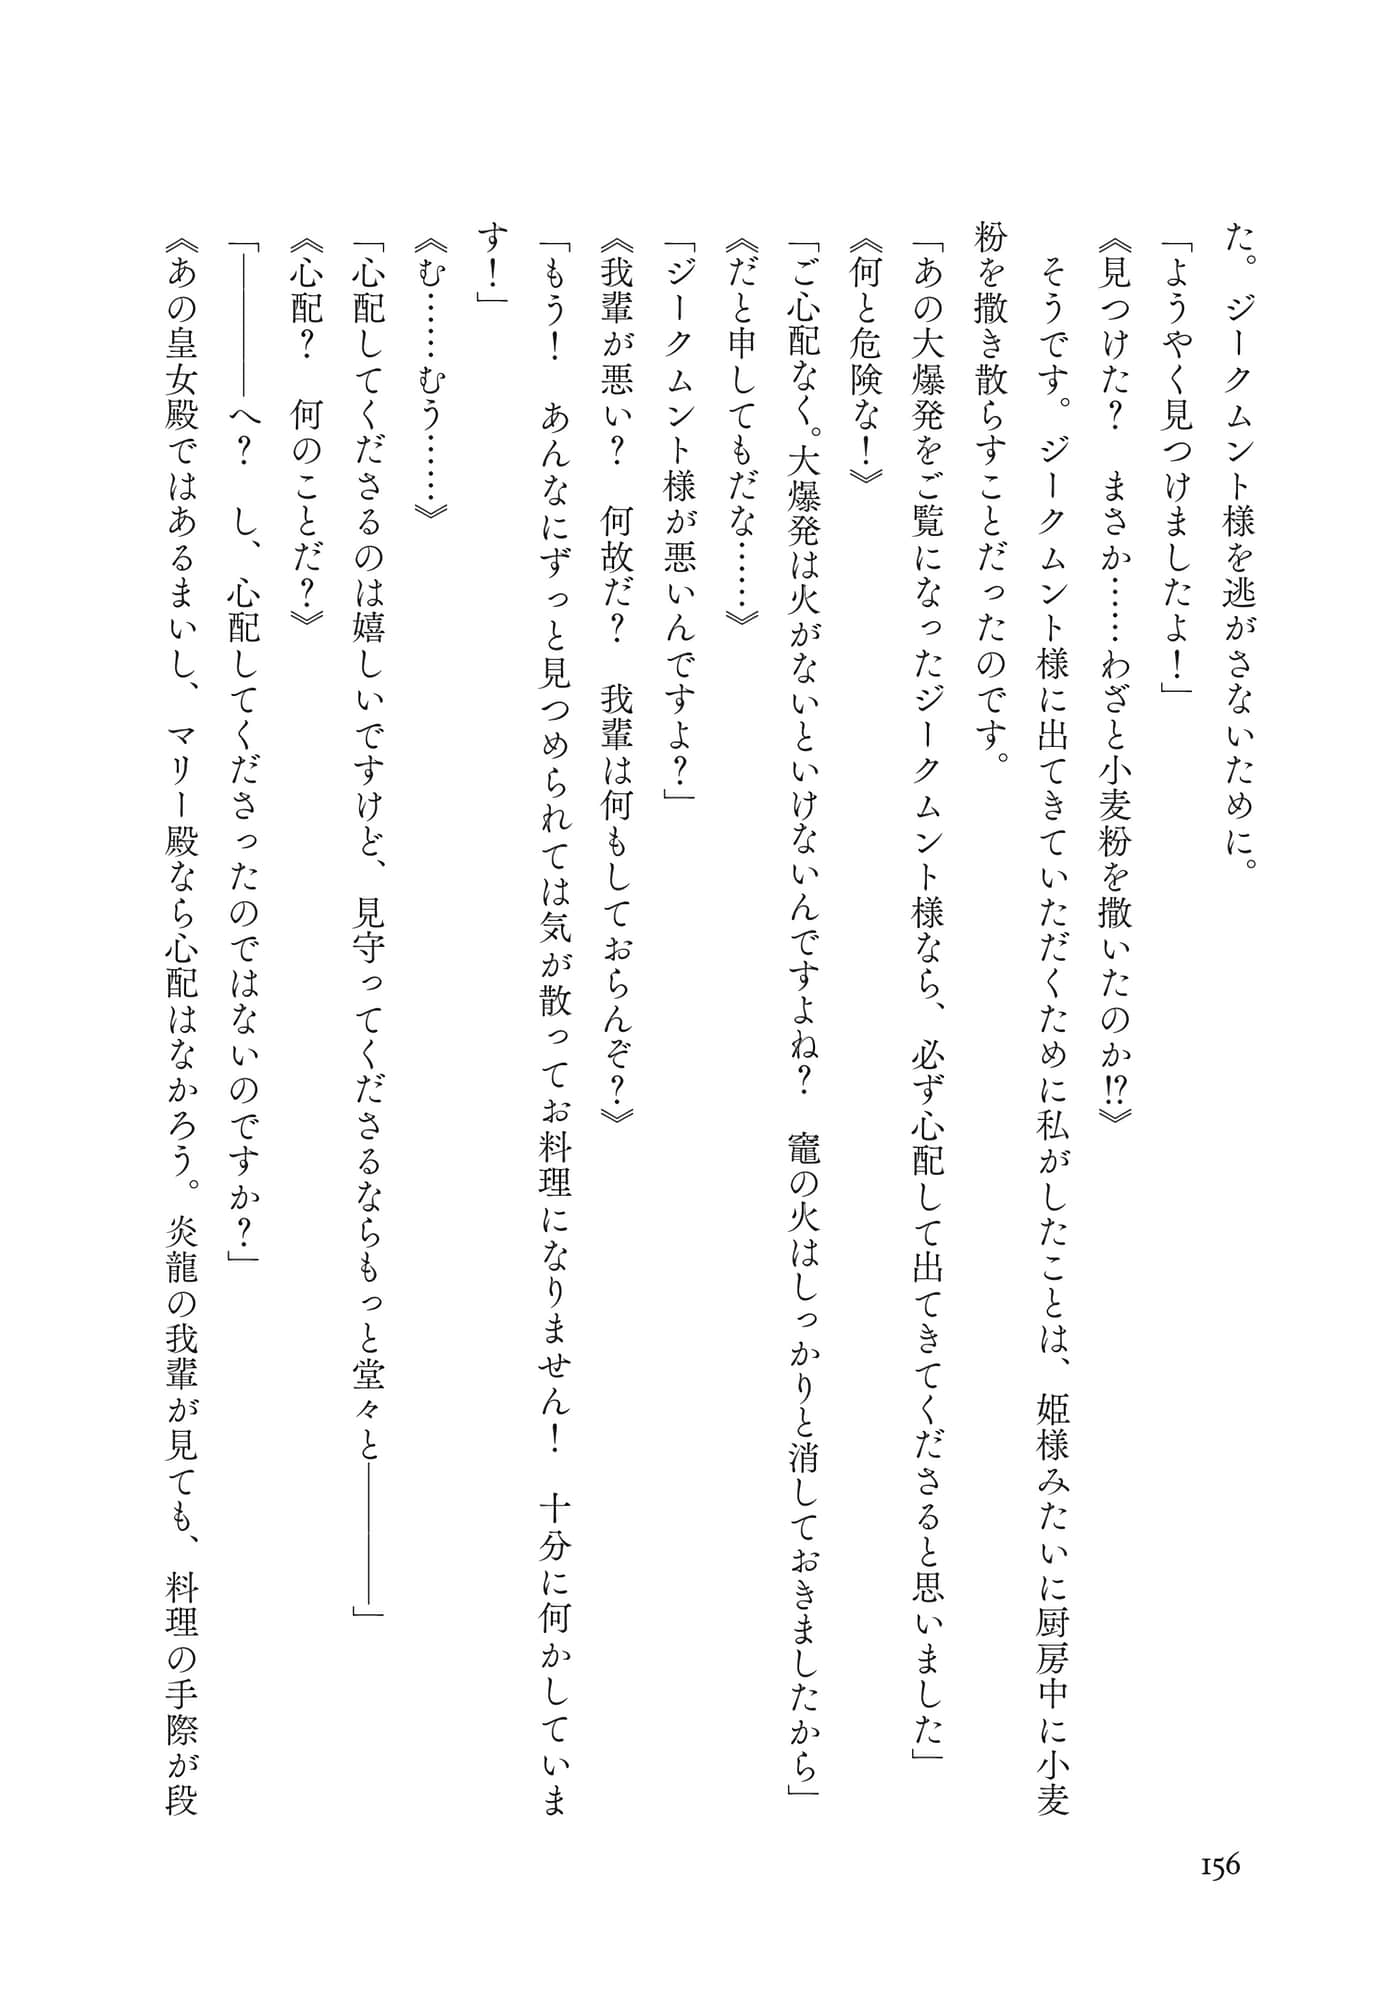 た。ジークムント様を逃がさないために。
「ようやく見つけましたよ！」
《見つけた？　まさか……わざと小麦粉を撒いたのか!?》
　そうです。ジークムント様に出てきていただくために私がしたことは、姫様みたいに厨房中に小麦
粉を撒き散らすことだったのです。
「あの大爆発をご覧になったジークムント様なら、必ず心配して出てきてくださると思いました」
《何と危険な！》
「ご心配なく。大爆発は火がないといけないんですよね？　竈の火はしっかりと消しておきましたから」
《だと申してもだな……》
「ジークムント様が悪いんですよ？」
《我輩が悪い？　何故だ？　我輩は何もしておらんぞ？》
「もう！　あんなにずっと見つめられては気が散ってお料理になりません！　十分に何かしていま
す！」
《む……むう……》
「心配してくださるのは嬉しいですけど、見守ってくださるならもっと堂々と――――」
《心配？　何のことだ？》
「――――へ？　し、心配してくださったのではないのですか？」
《あの皇女殿ではあるまいし、マリー殿なら心配はなかろう。炎龍の我輩が見ても、料理の手際が段
156